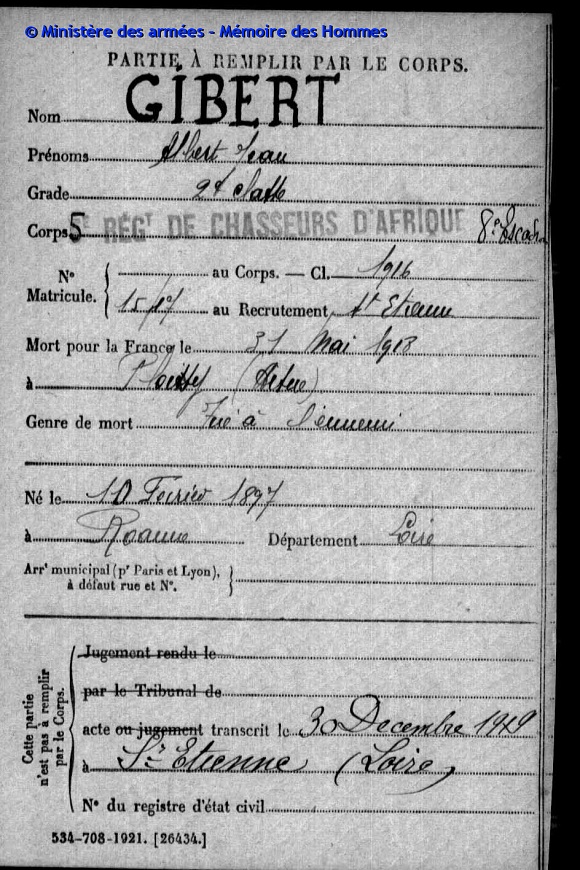 © Ministère des armées - Mémoire des Hommes
PARTIE À REMPLIR PAR LE CORPS.
Nom GIBERT
Prénoms Albert Jean
Grade 2e classe
Corps 5e RÉGT DE CHASSEURS D'AFRIQUE 8e Escadron
N° Matricule. { au Corps. — Cl. 1916
15/17 au Recrutement St Etienne
Mort pour la France le 31 Mai 1918
à (Aisne)
Genre de mort Tué à l'ennemi
Né le 10 Fevrier 1897
à Roanne Département Loire
Arrt municipal (pr Paris et Lyon),
à défaut rue et N°. }
Cette partie n'est pas à remplir par le Corps.
Jugement rendu le
par le Tribunal de
acte ou jugement transcrit le 30 Decembre 1919
à St Etienne (Loire)
N° du registre d'état civil
534-708-1921. [26434.]